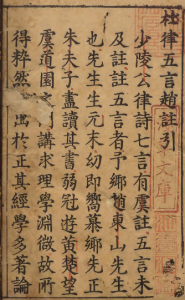 杜律五言趙註引
少陵公律詩七言有虞註五言未
及註註五言者予鄉趙東山先生
也先生生元末幼即嚮慕鄉先正
朱夫子盡讀其書弱冠遊黃楚望
虞道園之門講求理學淵微故所
得粹然出於正其經學多著論